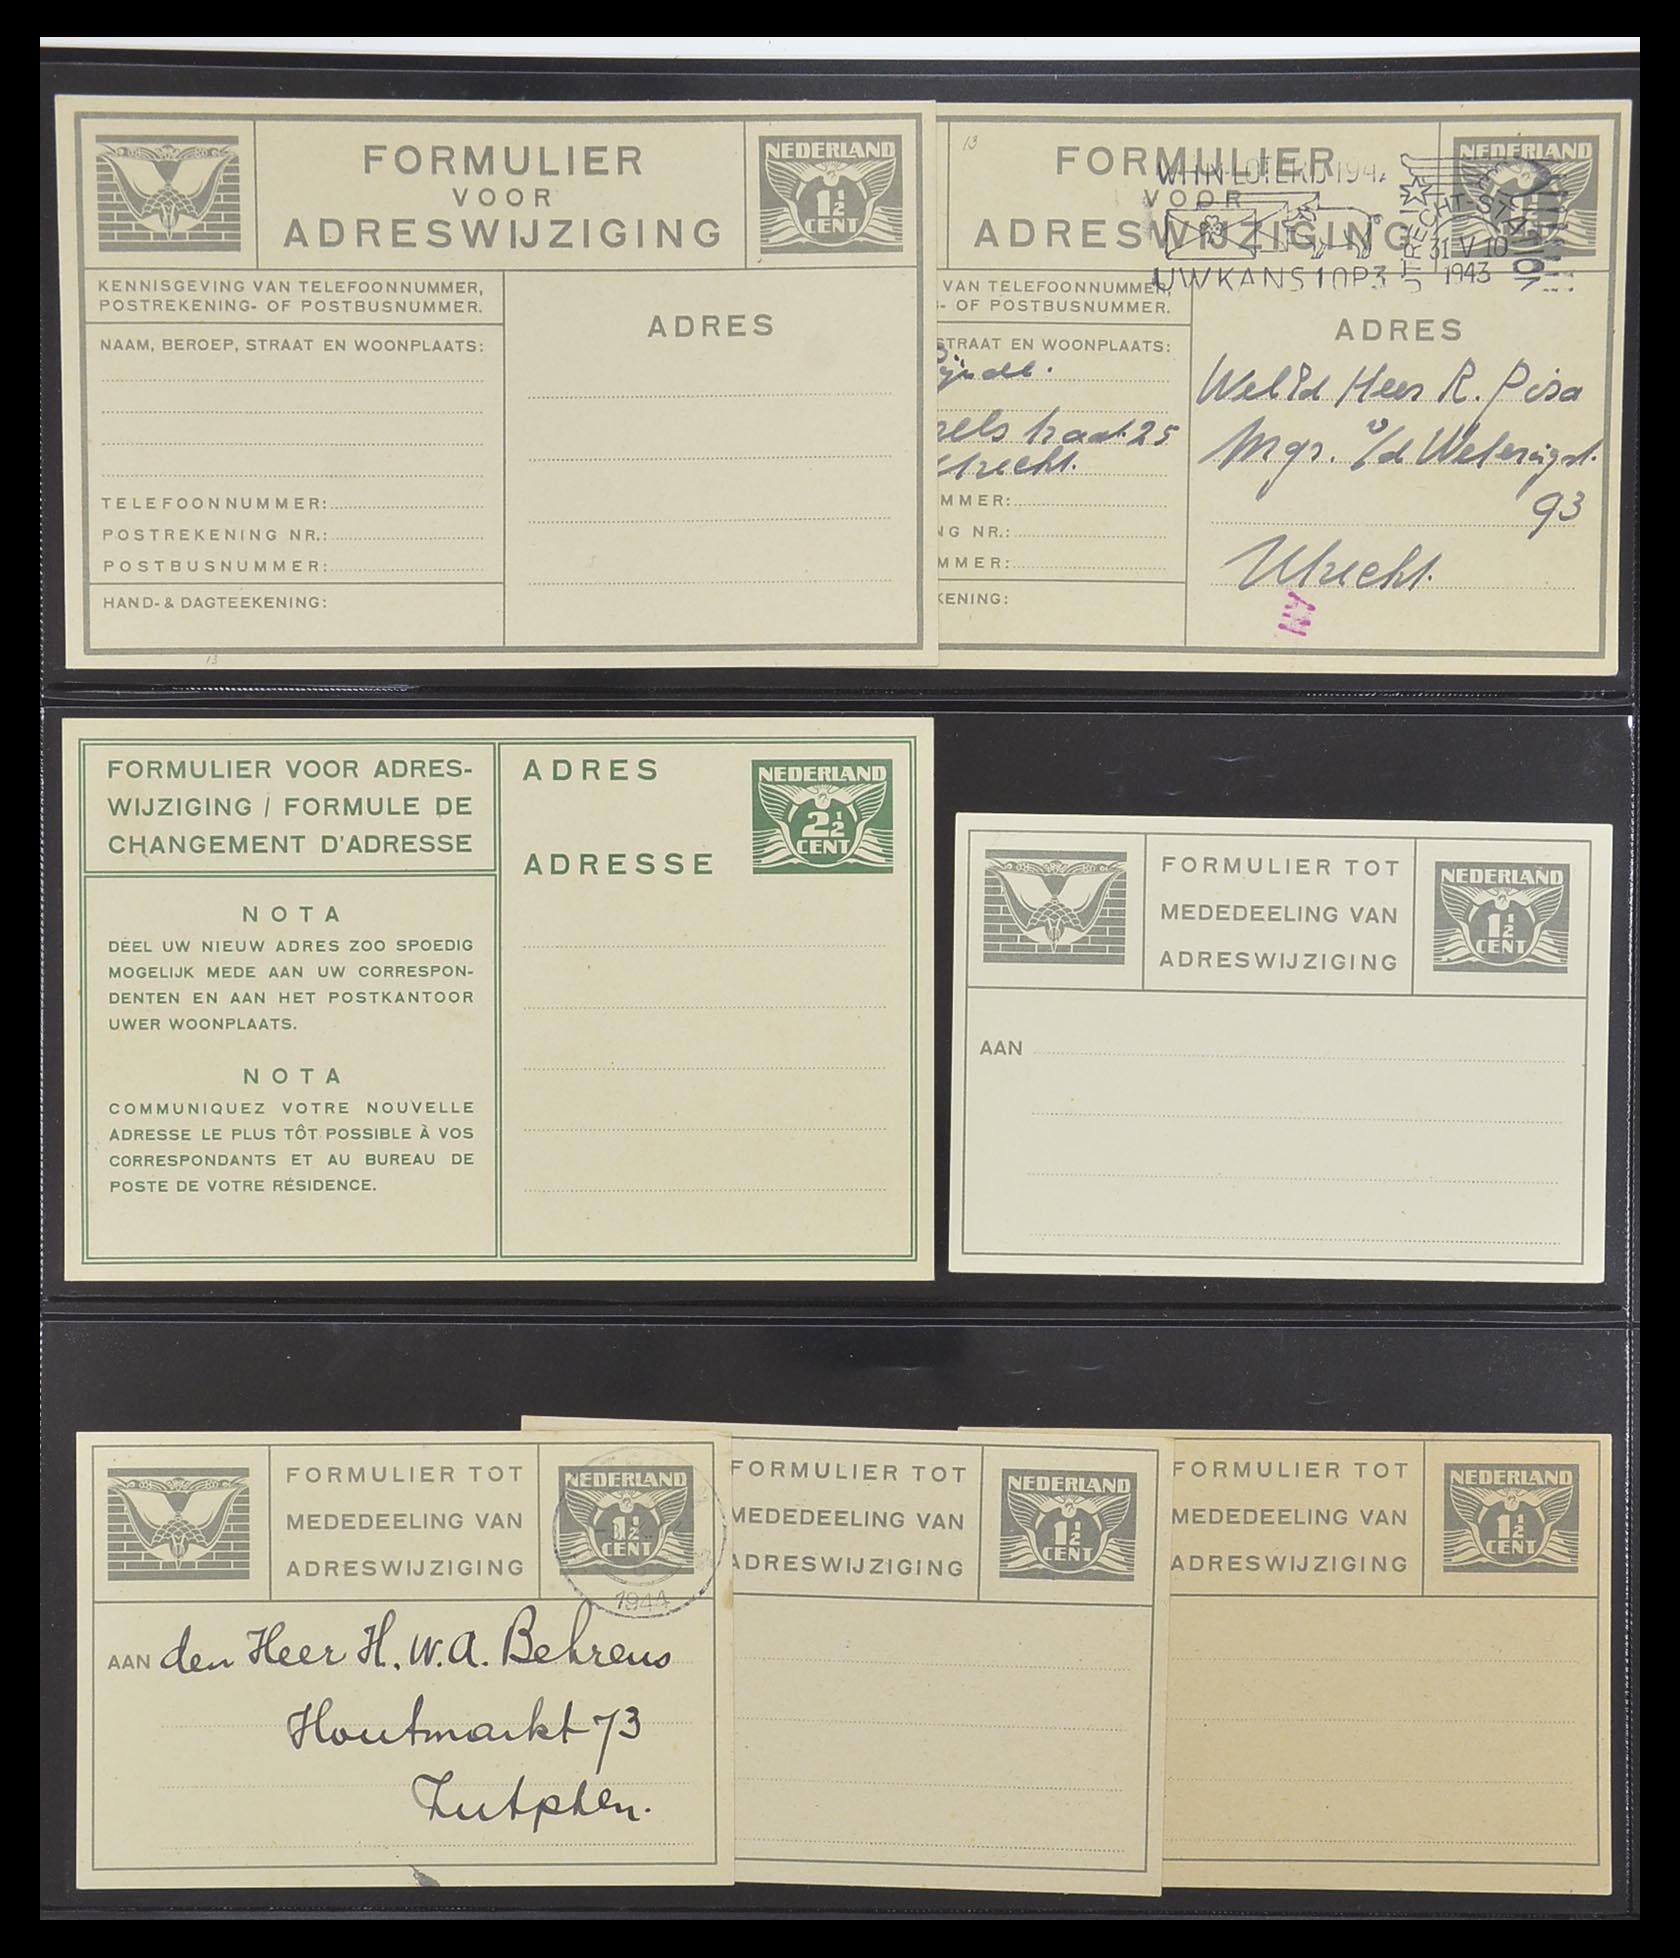 FORMULIER
VOOR
ADRESWIJZIGING
NEDERLAND
1½
CENT
KENNISGEVING VAN TELEFOONNUMMER,
POSTREKENING- OF POSTBUSNUMMER.
NAAM, BEROEP, STRAAT EN WOONPLAATS:
TELEFOONNUMMER:
POSTREKENING NR.:
POSTBUSNUMMER:
HAND- & DAGTEEKENING:
ADRES
13
13
FORMULIER
VOOR
ADRESWIJZIGING
NEDERLAND
WHN-LOTERIJ 194
UW KANS 1 OP 3
UTRECHT-STATION
31 V 10
1943
VAN TELEFOONNUMMER,
- OF POSTBUSNUMMER.
STRAAT EN WOONPLAATS:
straat 25
Utrecht.
MMER:
NG NR.:
MMER:
KENING:
ADRES
WelEd Heer R. Pisa
Mgr. v/d Weteringst.
93
Utrecht.
FORMULIER VOOR ADRES-
WIJZIGING / FORMULE DE
CHANGEMENT D'ADRESSE
NOTA
DEEL UW NIEUW ADRES ZOO SPOEDIG
MOGELIJK MEDE AAN UW CORRESPON-
DENTEN EN AAN HET POSTKANTOOR
UWER WOONPLAATS.
NOTA
COMMUNIQUEZ VOTRE NOUVELLE
ADRESSE LE PLUS TÔT POSSIBLE À VOS
CORRESPONDANTS ET AU BUREAU DE
POSTE DE VOTRE RÉSIDENCE.
ADRES
ADRESSE
NEDERLAND
2½
CENT
FORMULIER TOT
MEDEDEELING VAN
ADRESWIJZIGING
NEDERLAND
1½
CENT
AAN
FORMULIER TOT
MEDEDEELING VAN
ADRESWIJZIGING
NEDERLAND
1½
CENT
1944
AAN den Heer H. W. A. Behrens
Houtmarkt 73
Zutphen.
FORMULIER TOT
MEDEDEELING VAN
ADRESWIJZIGING
NEDERLAND
1½
CENT
FORMULIER TOT
MEDEDEELING VAN
ADRESWIJZIGING
NEDERLAND
1½
CENT